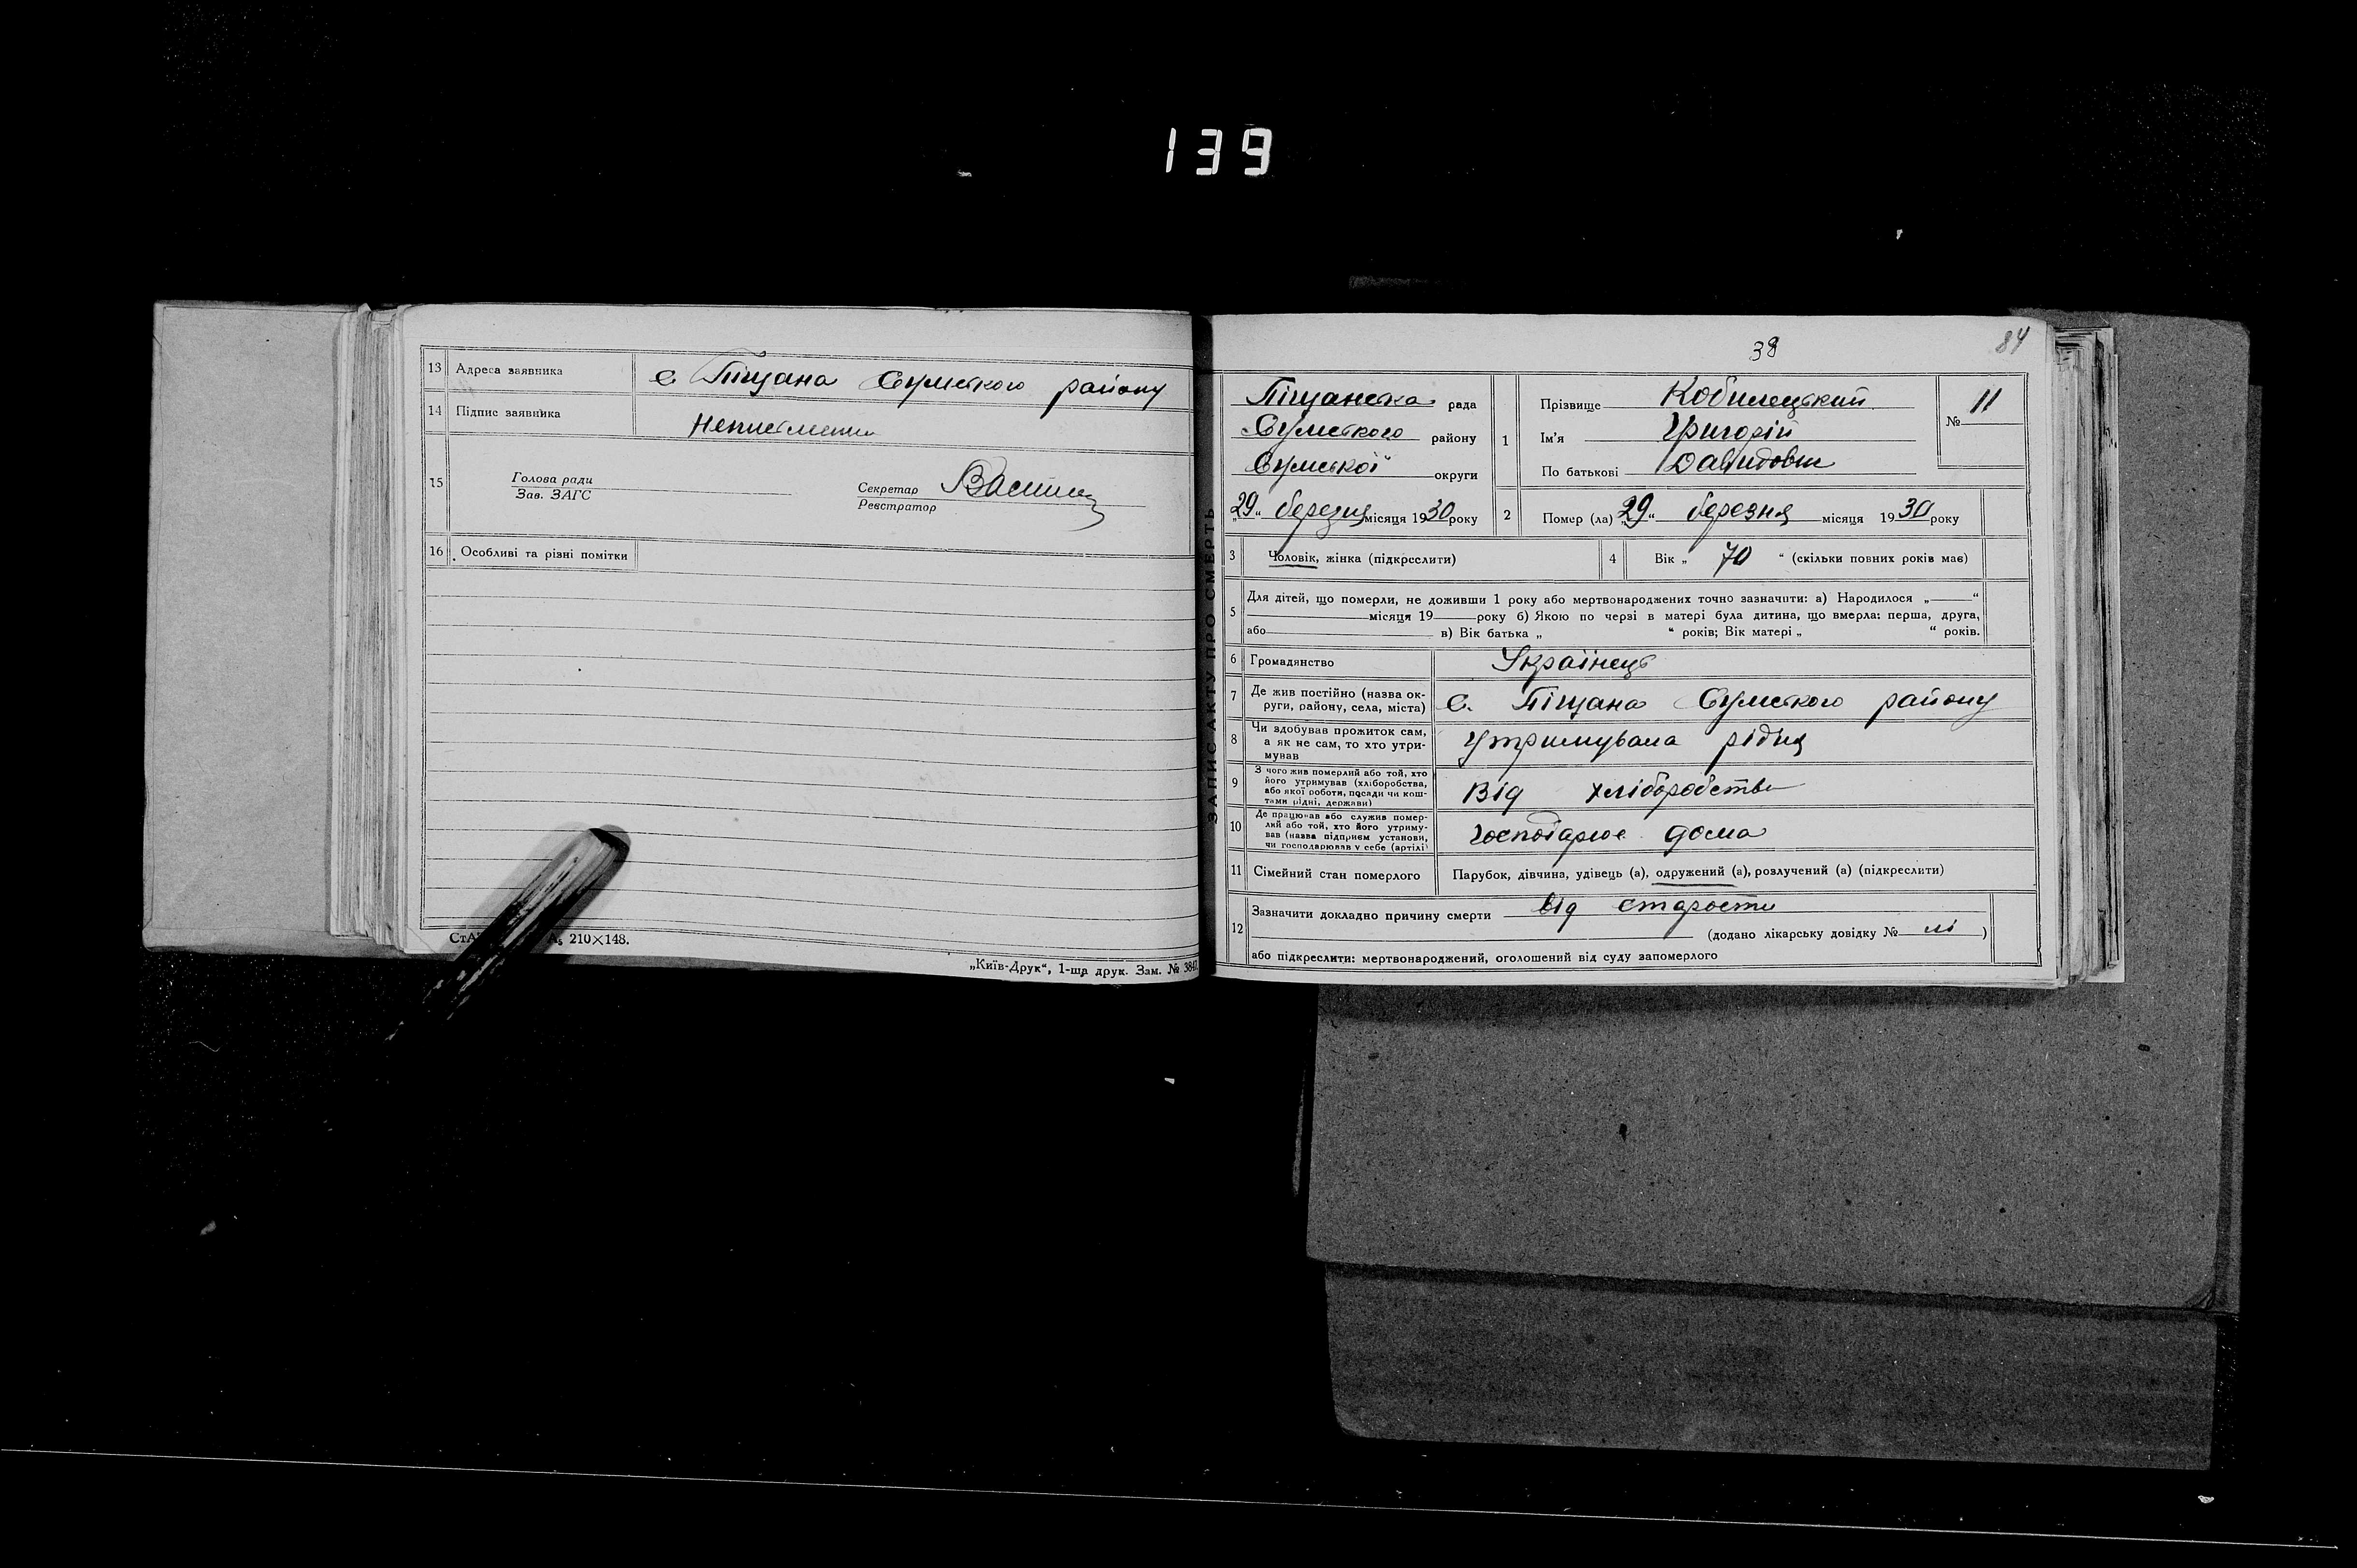 139
13 Адреса заявника с Піщана Сумського району
14 Підпис заявника Неписьмени
15 Голова ради
Зав. ЗАГС
Секретар
Реєстратор
16 Особливі та різні помітки
210×148.
„Київ-Друк“, 1-ша друк. Зам. № 384
ЗАПИС АКТУ ПРО СМЕРТЬ
38
84
Піщанська рада
Сумського району
Сумської округи
„29“ березня місяця 1930 року
1 Прізвище Кобилецький
Ім'я Григорій
По батькові Давидович
№ 11
2 Помер (ла) „29“ березня місяця 1930 року
3 Чоловік, жінка (підкреслити)
4 Вік „ 70 “ (скільки повних років має)
5 Для дітей, що померли, не доживши 1 року або мертвонароджених точно зазначити: а) Народилося „ “
місяця 19 року б) Якою по черзі в матері була дитина, що вмерла: перша, друга,
або в) Вік батька „ “ років; Вік матері „ “ років.
6 Громадянство Українець
7 Де жив постійно (назва ок-
руги, району, села, міста) С. Піщана Сумського району
8 Чи здобував прожиток сам,
а як не сам, то хто утри-
мував Утримувала рідня
9 З чого жив померлий або той, хто
його утримував (хліборобства,
або якої роботи, посади чи кош-
тами рідні, держави) Від хліборобства
10 Де працював або служив помер-
лий або той, хто його утриму-
вав (назва підприєм установи,
чи господарював у себе (артілі) господарює дома
11 Сімейний стан померлого Парубок, дівчина, удівець (а), одружений (а), розлучений (а) (підкреслити)
12 Зазначити докладно причину смерти від старости
(додано лікарську довідку № ні )
або підкреслити: мертвонароджений, оголошений від суду запомерлого